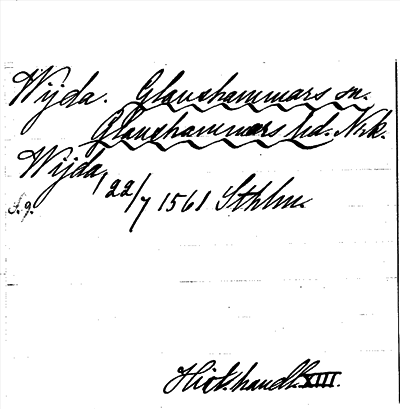 Wijda. Glanshammars sn.
Glanshammars hd. Nrk.
Wijda, 22/7 1561 Sthlm
S. 9.
Hist. handl. XIII.